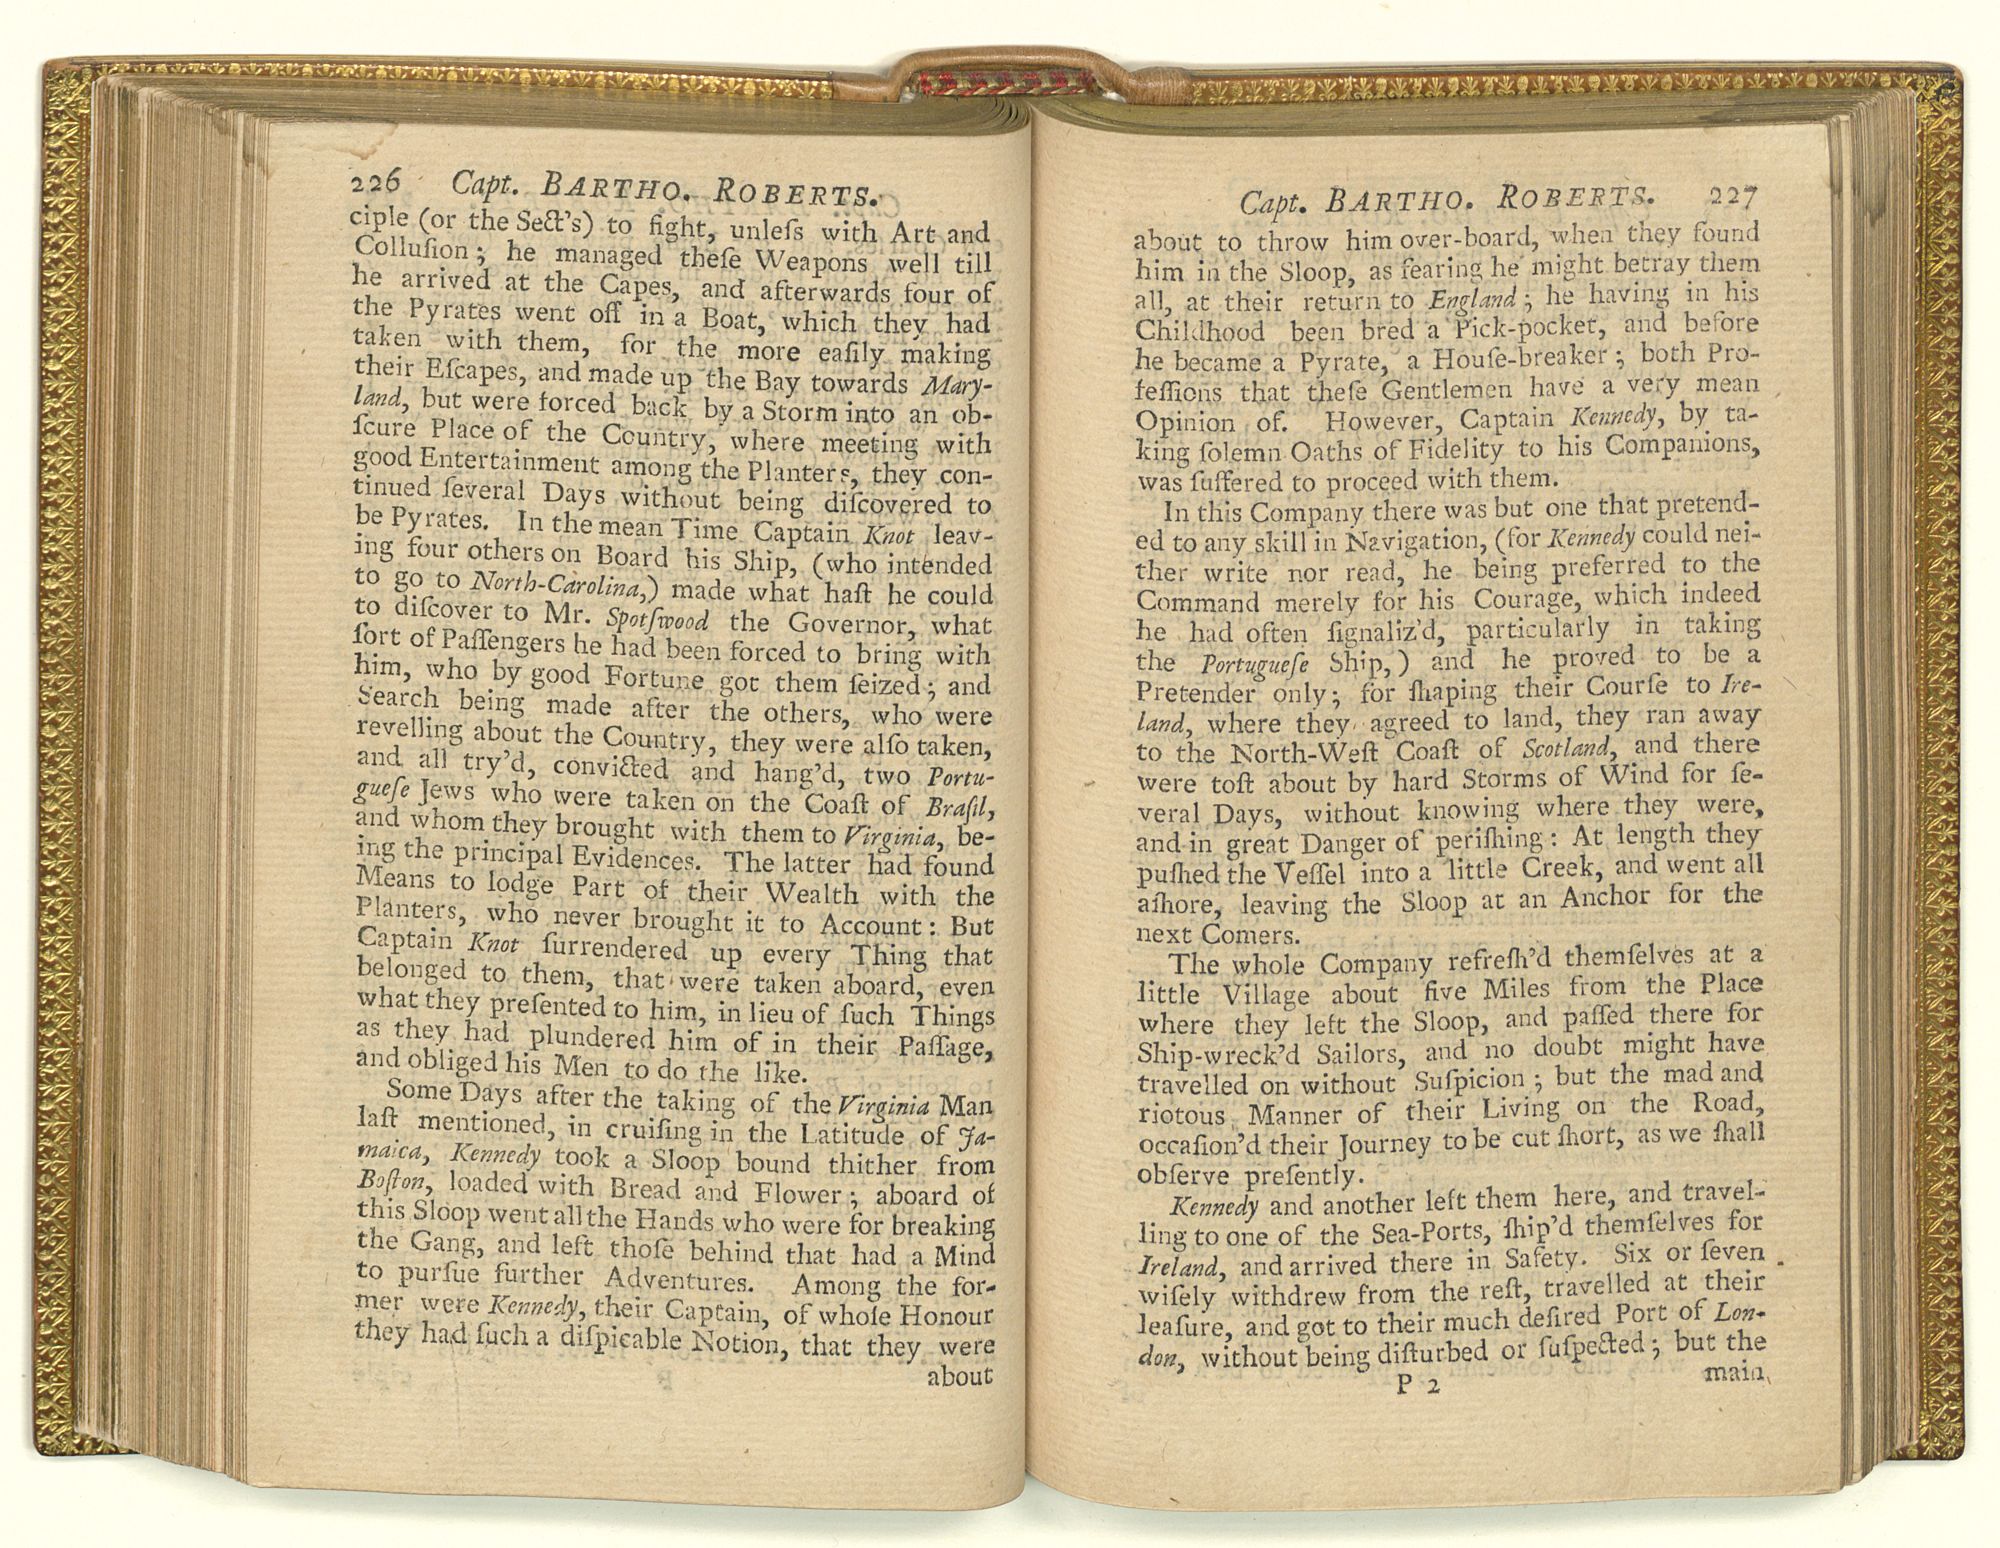 226 Capt. BARTHO. ROBERTS.
ciple (or the Sect's) to fight, unleſs with Art and
Colluſion; he managed theſe Weapons well till
he arrived at the Capes, and afterwards four of
the Pyrates went off in a Boat, which they had
taken with them, for the more eaſily making
their Eſcapes, and made up the Bay towards Mary-
land, but were forced back by a Storm into an ob-
ſcure Place of the Country, where meeting with
good Entertainment among the Planters, they con-
tinued ſeveral Days without being diſcovered to
be Pyrates. In the mean Time Captain Knot leav-
ing four others on Board his Ship, (who intended
to go to North-Carolina,) made what haſt he could
to diſcover to Mr. Spotſwood the Governor, what
ſort of Paſſengers he had been forced to bring with
him, who by good Fortune got them ſeized; and
Search being made after the others, who were
revelling about the Country, they were alſo taken,
and all try'd, convicted and hang'd, two Portu-
gueſe Jews who were taken on the Coaſt of Braſil,
and whom they brought with them to Virginia, be-
ing the principal Evidences. The latter had found
Means to lodge Part of their Wealth with the
Planters, who never brought it to Account: But
Captain Knot ſurrendered up every Thing that
belonged to them, that were taken aboard, even
what they preſented to him, in lieu of ſuch Things
as they had plundered him of in their Paſſage,
and obliged his Men to do the like.
Some Days after the taking of the Virginia Man
laſt mentioned, in cruiſing in the Latitude of Ja-
maica, Kennedy took a Sloop bound thither from
Boſton, loaded with Bread and Flower; aboard of
this Sloop went all the Hands who were for breaking
the Gang, and left thoſe behind that had a Mind
to purſue further Adventures. Among the for-
mer were Kennedy, their Captain, of whoſe Honour
they had ſuch a diſpicable Notion, that they were
about
Capt. BARTHO. ROBERTS. 227
about to throw him over-board, when they found
him in the Sloop, as fearing he might betray them
all, at their return to England; he having in his
Childhood been bred a Pick-pocket, and before
he became a Pyrate, a Houſe-breaker; both Pro-
feſſions that theſe Gentlemen have a very mean
Opinion of. However, Captain Kennedy, by ta-
king ſolemn Oaths of Fidelity to his Companions,
was ſuffered to proceed with them.
In this Company there was but one that pretend-
ed to any skill in Navigation, (for Kennedy could nei-
ther write nor read, he being preferred to the
Command merely for his Courage, which indeed
he had often ſignaliz'd, particularly in taking
the Portugueſe Ship,) and he proved to be a
Pretender only; for ſhaping their Courſe to Ire-
land, where they agreed to land, they ran away
to the North-Weſt Coaſt of Scotland, and there
were toſt about by hard Storms of Wind for ſe-
veral Days, without knowing where they were,
and in great Danger of periſhing: At length they
puſhed the Veſſel into a little Creek, and went all
aſhore, leaving the Sloop at an Anchor for the
next Comers.
The whole Company refreſh'd themſelves at a
little Village about five Miles from the Place
where they left the Sloop, and paſſed there for
Ship-wreck'd Sailors, and no doubt might have
travelled on without Suſpicion; but the mad and
riotous Manner of their Living on the Road,
occaſion'd their Journey to be cut ſhort, as we ſhall
obſerve preſently.
Kennedy and another left them here, and travel-
ling to one of the Sea-Ports, ſhip'd themſelves for
Ireland, and arrived there in Safety. Six or ſeven
wiſely withdrew from the reſt, travelled at their
leaſure, and got to their much deſired Port of Lon-
don, without being diſturbed or ſuſpected; but the
P 2 main